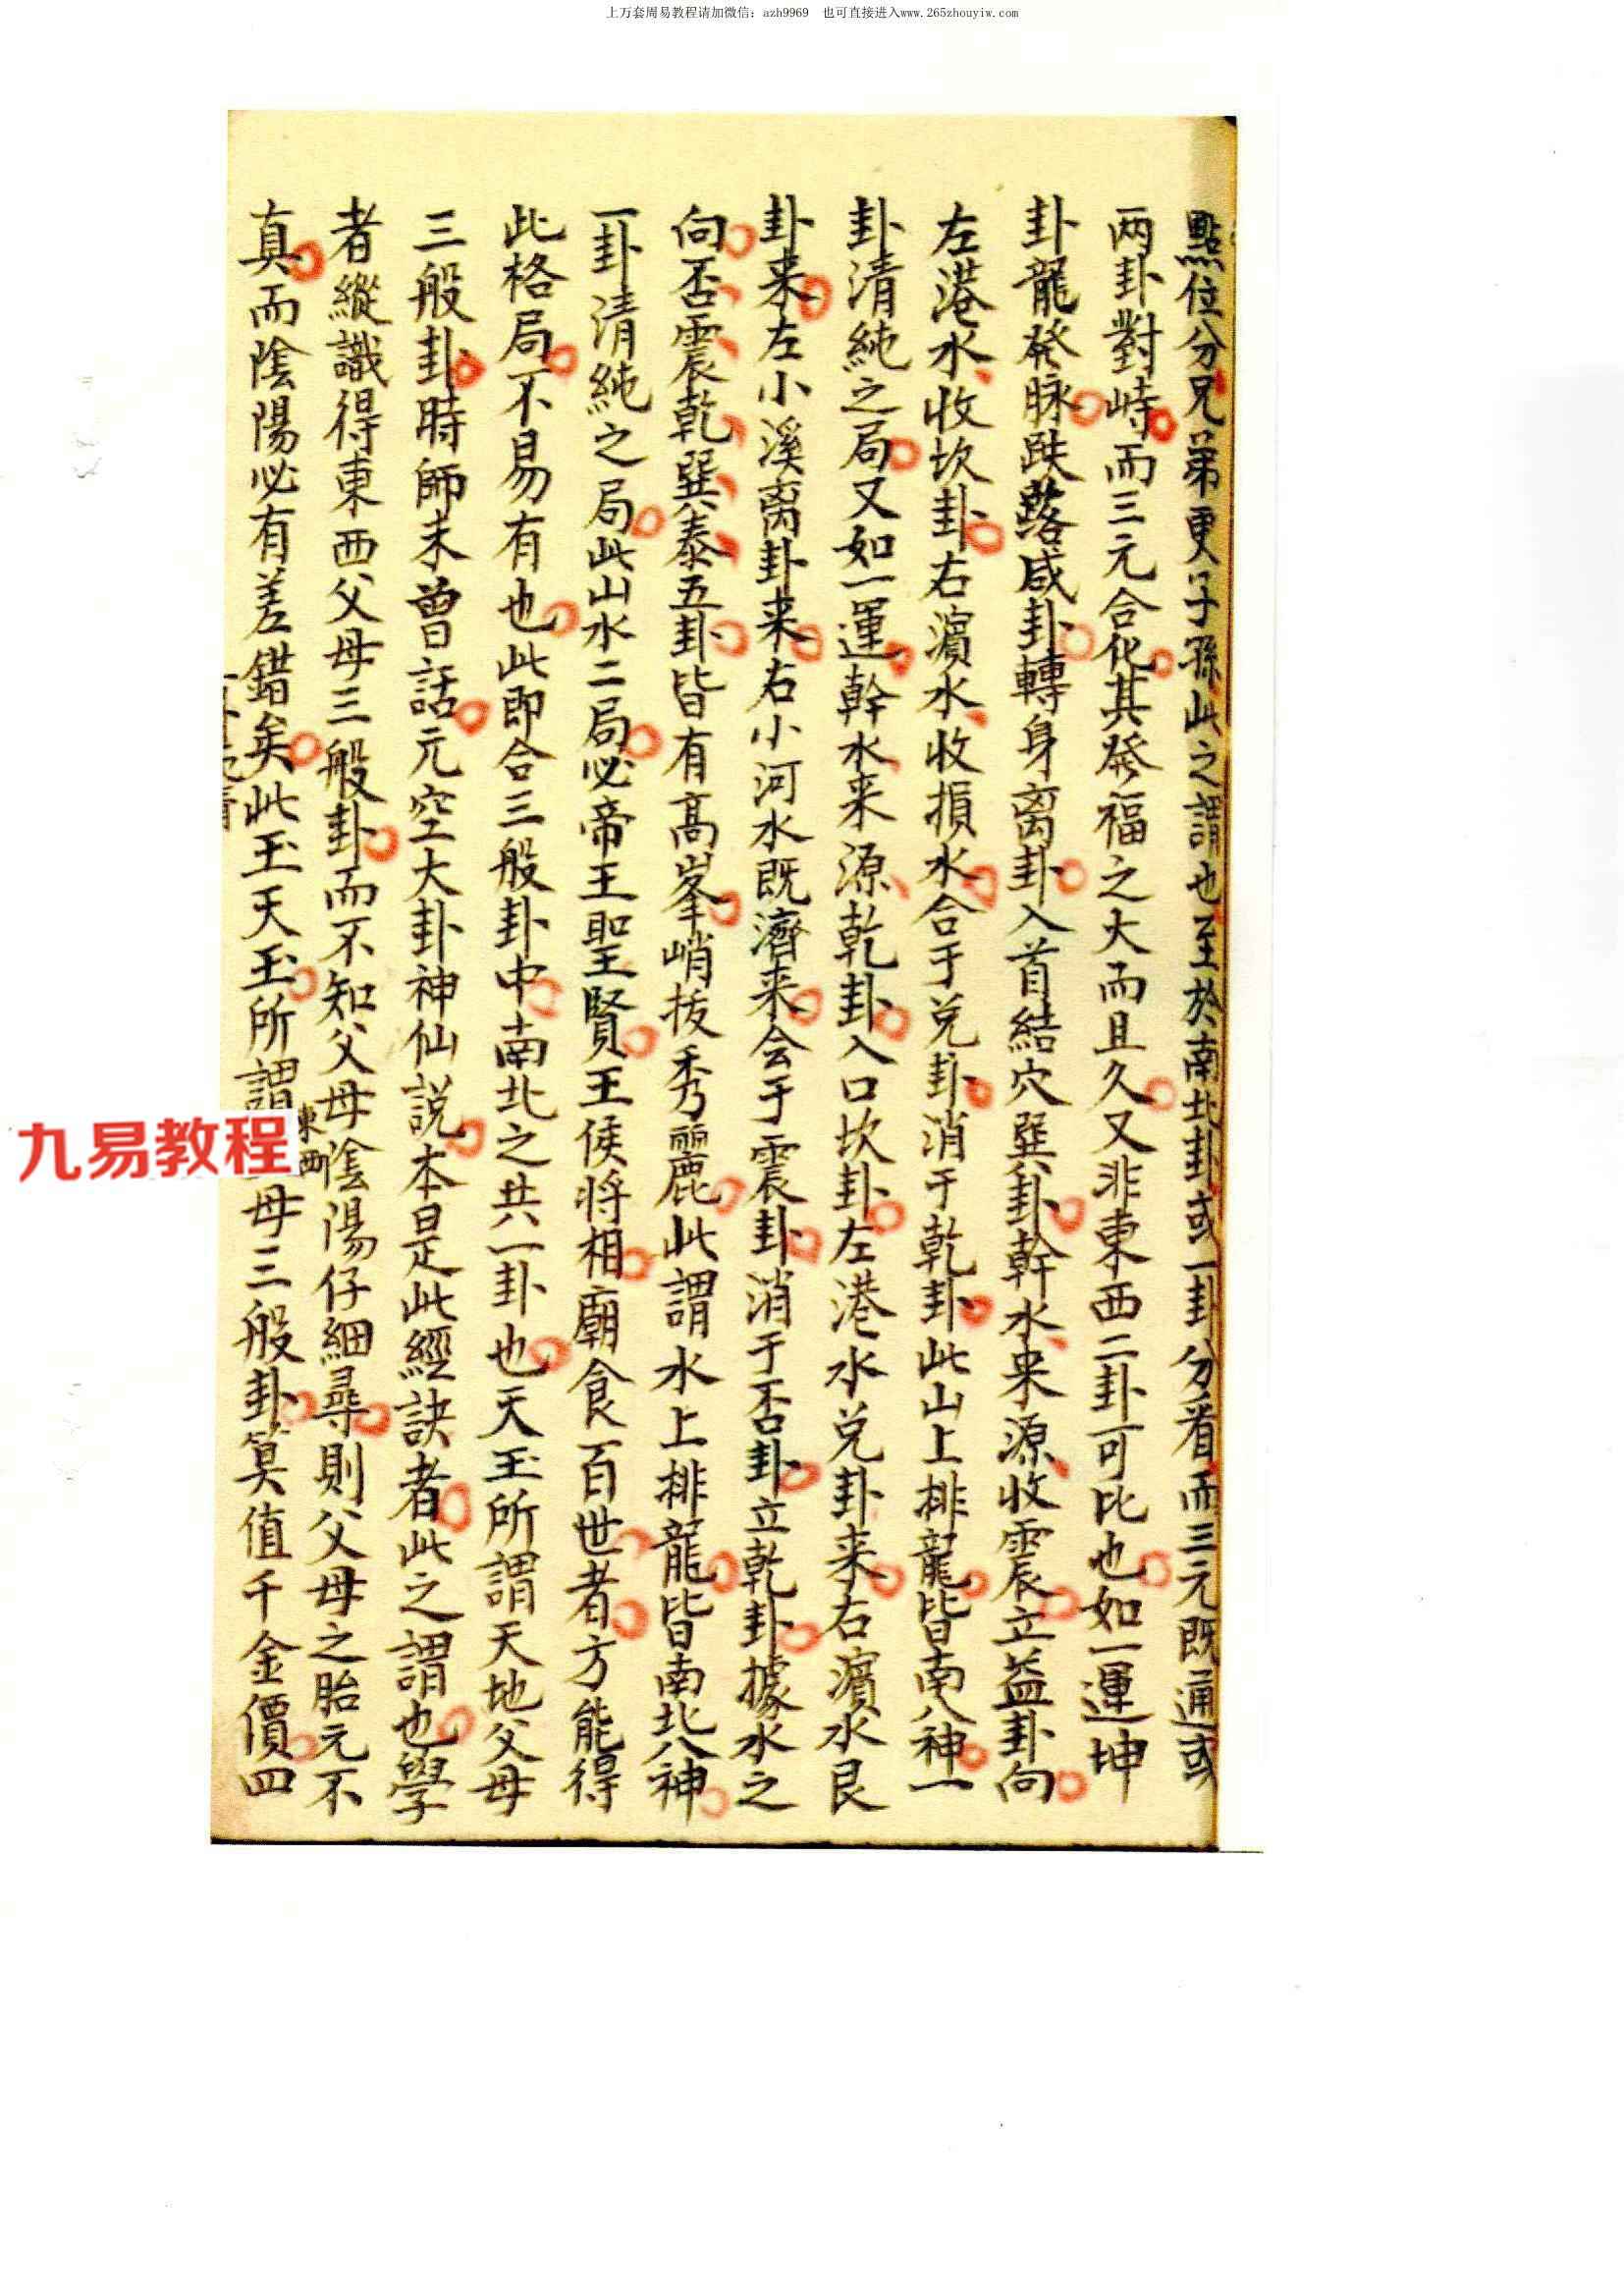 上万套周易教程请加微信：azh9969 也可直接进入www.265zhouyiw.com
點位分兄弟更子孫此之謂也至於南北卦或一卦分看而三元既通或
两卦對峙而三元合化其發福之大而且久又非東西二卦可比也如一運坤
卦龍發脉跌落咸卦轉身离卦入首結穴巽卦幹水来源收震立益卦向
左港水收坎卦右濵水收損水合于兑卦消于乾卦此山上排龍皆南八神一
卦清純之局又如一運幹水来源乾卦入口坎卦左港水兑卦来右濵水艮
卦来左小溪离卦来右小河水既濟来会于震卦消于否卦立乾卦據水之
向否震乾巽泰五卦皆有高峯峭拔秀麗此謂水上排龍皆南北八神
一卦清純之局此山水二局必帝王聖賢王侯将相廟食百世者方能得
此格局不易有也此即合三般卦中南北之共一卦也天玉所謂天地父母
三般卦時師未曾話元空大卦神仙説本是此經訣者此之謂也學
者縱識得東西父母三般卦而不知父母陰陽仔細尋則父母之胎元不
真而陰陽必有差錯矣此玉天玉所謂東西母三般卦算值千金價四
九易教程